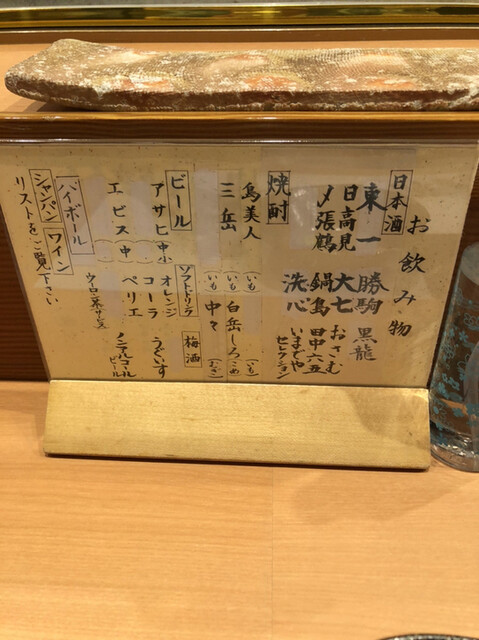 お飲み物
日本酒
東一 勝駒 黒龍
日高見 大七 おさむ
〆張鶴 鍋島 田中六五
洗心 いまでや セレクション
焼酎
鳥美人（いも） 白岳しろ（こめ）
三岳（いも） 中々（むぎ）
ビール
アサヒ（中小）
エビス（中）
ソフトドリンク
オレンジ
コーラ
ペリエ
ウーロン茶
梅酒
うぐいす
ノンアルコールビール
ハイボール
シャンパン ワイン
リストをご覧下さい